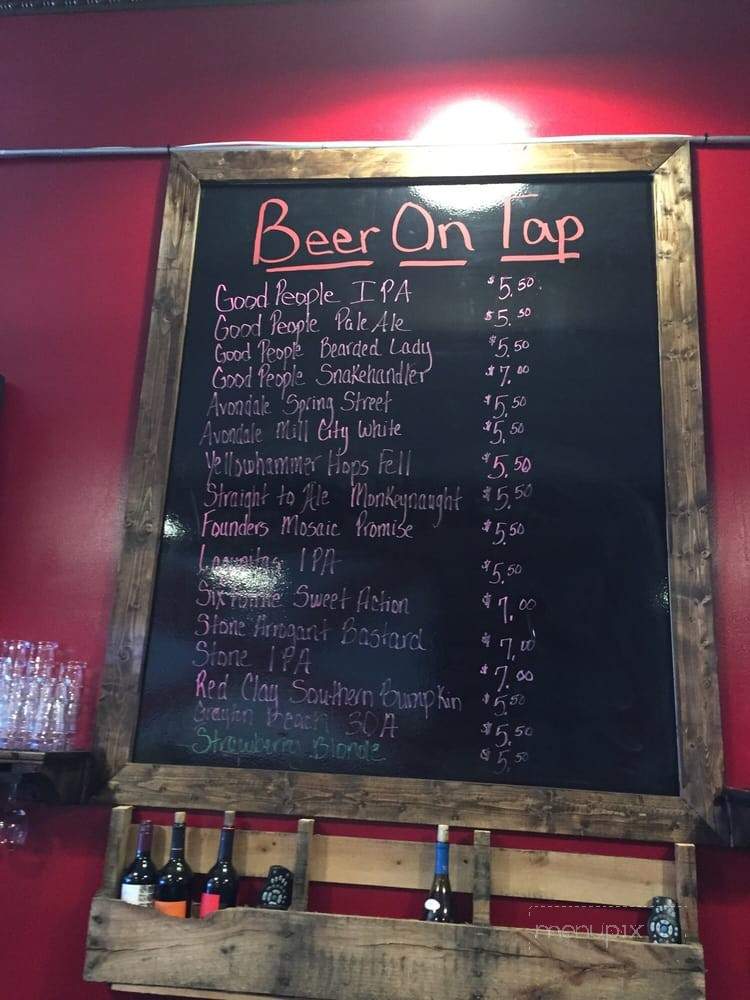 Beer On Tap
Good People IPA $5.50
Good People Pale Ale $5.50
Good People Bearded Lady $5.50
Good People Snakehandler $7.00
Avondale Spring Street $5.50
Avondale Mill City White $5.50
Yellowhammer Hops Fell $5.50
Straight to Ale Monkeynaught $5.50
Founders Mosaic Promise $5.50
Lagunitas IPA $5.50
Sixpointe Sweet Action $7.00
Stone Arrogant Bastard $7.00
Stone IPA $7.00
Red Clay Southern Bumpkin $5.50
Grayton Beach 30A $5.50
Strawberry Blonde $5.50
menupix